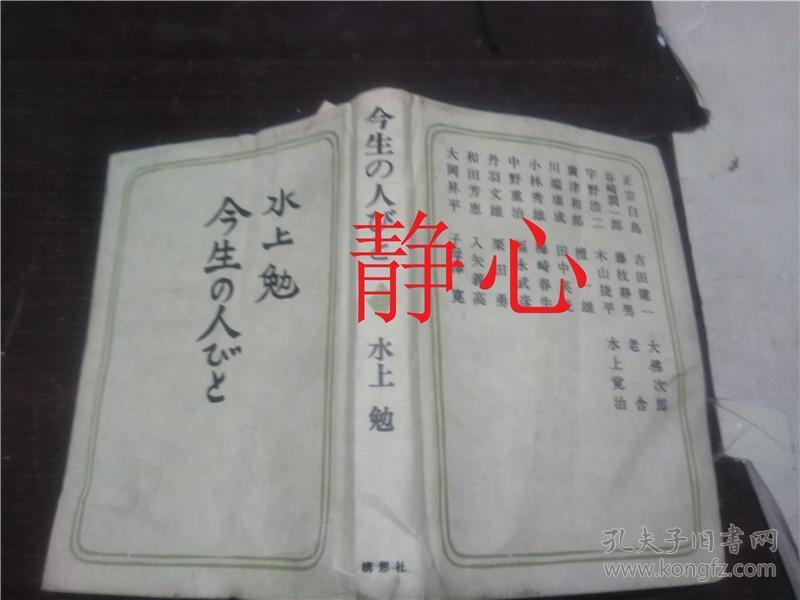 水上勉
今生の人びと
今生の人びと
水上 勉
構想社
正宗白鳥
谷崎潤一郎
宇野浩二
廣津和郎
川端康成
小林秀雄
中野重治
丹羽文雄
和田芳恵
大岡昇平
吉田健一
藤枝静男
木山捷平
檀一雄
田中英光
梅崎春生
福永武彦
栗田勇
入矢義高
子母澤寛
大佛次郎
老舎
水上覚治
静心
孔夫子旧书网
www.kongfz.com